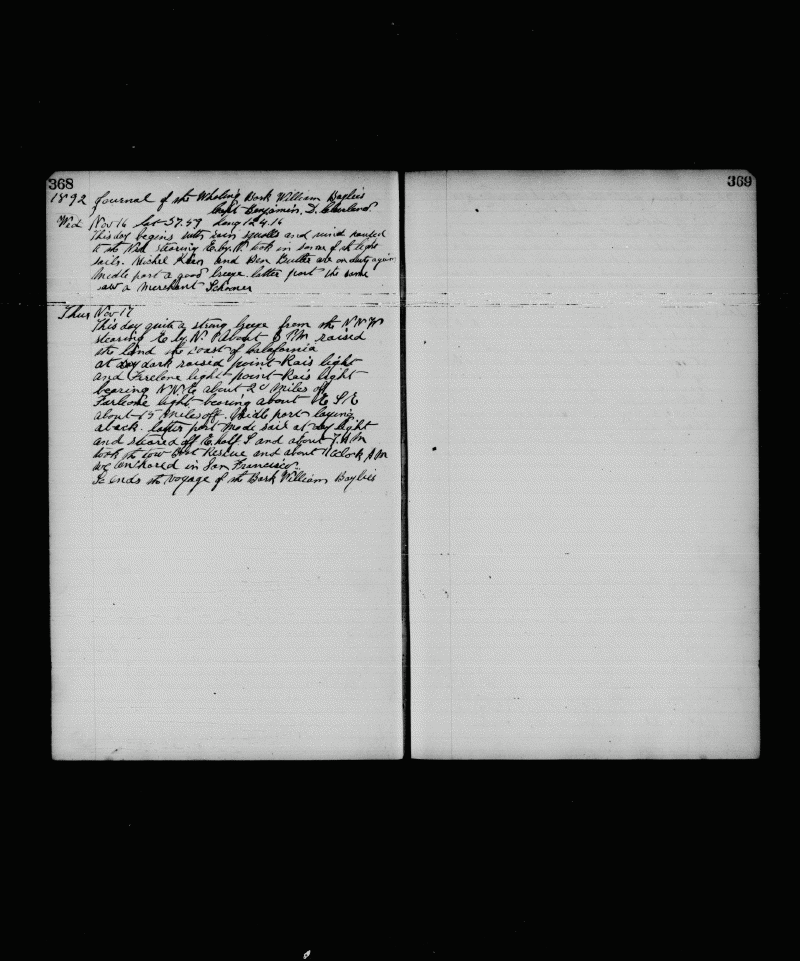 368
369
1892 Journal of the Whaling Bark William Baylies
Capt Benjamin, D. Cleveland
Wed Nov 16 Lat 37.49 Long 124.16
This day begins with rain squalls and wind hauled
to the Wd stearing E. by N. took in some of the light
sails. and Ben Butler are on duty again
Midle part a good breeze. latter part the same
saw a Merchant Schoner
Thur Nov 17
This day quite a strong breeze from the N N W
stearing E by N. About 3 PM raised
the land the coast of Calafornia
at dark raised point Rais light
and Ferelone light point Rais light
bearing N.N.E. about 20 Miles off
Farlone light bearing about E S E
about 15 Miles off. Midle part laying
aback. latter part made sail at day light
and steared off E. half S and about 7. A M
took the tow boat Rescue and about 11 aclock A M
we anchored in San Francisco.
So ends the voyage of the Bark William Baylies